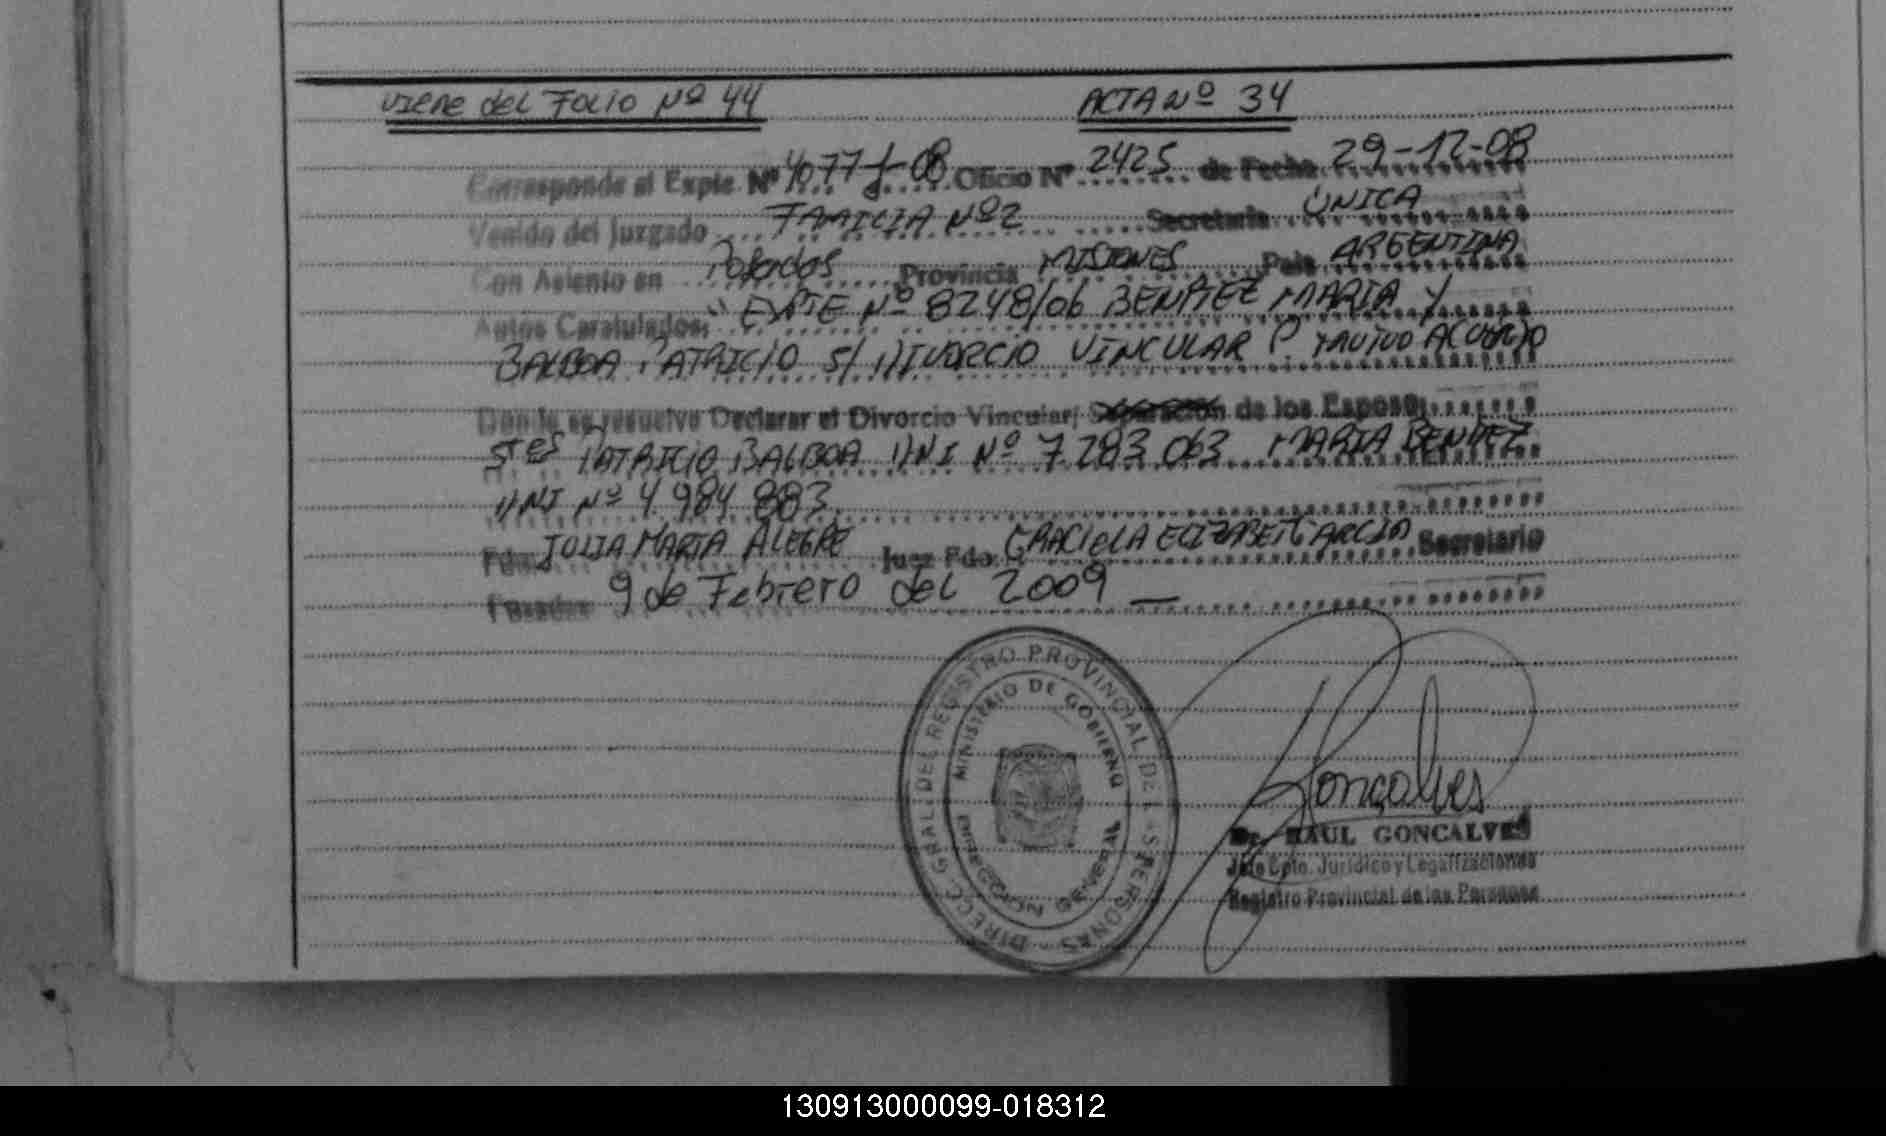 Viene del Folio Nº 44 ACTA Nº 34
Corresponde al Expte. Nº 4077-J-08 Oficio Nº 2425 de Fecha 29-12-08
Venido del Juzgado FAMILIA Nº 2 Secretaria ÚNICA
Con Asiento en Posadas Provincia MISIONES Pais ARGENTINA
Autos Caratulados: "EXPTE Nº 8248/06 BENITEZ MARIA Y
BALBOA PATRICIO S/ DIVORCIO VINCULAR P. MUTUO ACUERDO
Donde se resuelve Declarar el Divorcio Vincular/ Separación de los Esposos
Stes PATRICIO BALBOA DNI Nº 7.283.063 MARIA BENITEZ
DNI Nº 4.984.883.
Fdo. JULIA MARIA ALEGRE Juez Fdo. GRACIELA ELIZABET GARCIA Secretario
Posadas 9 de Febrero del 2009 —
DIRECC. GRAL. DEL REGISTRO PROVINCIAL DE LAS PERSONAS
MINISTERIO DE GOBIERNO
DIRECCION GENERAL
Gonçalves
Dr. RAUL GONCALVES
Jefe Dpto. Jurídico y Legalizaciones
Registro Provincial de las Personas
130913000099-018312